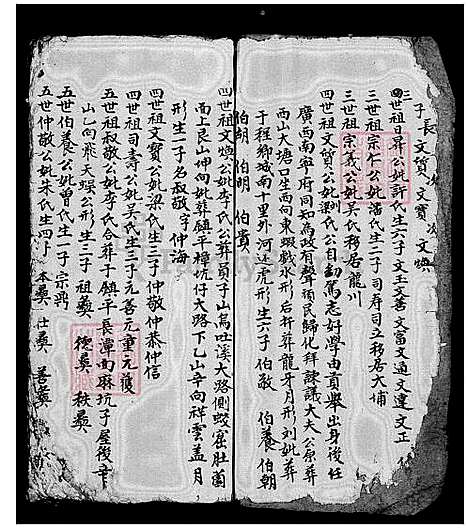 子長文質 次文寶 次文煥
四世祖日昇公妣許氏生六子文玉文善文富文通文達文正
三世祖宗仁公妣潘氏生二子司寿司立移居大埔
三世祖宗義公妣吳氏移居龍川
四世祖文質公妣劉氏公自幼篤志好學由貢舉出身後任
廣西南寧府同知為政有聲頑民歸化拜諫議大夫公原葬
西山大塘口坐西向東蝦戲水形后扦葬龍牙月形刘妣葬
于程鄉城南十里外河辺虎形生六子伯敬 伯養 伯朝
伯明 伯貴
四世祖文煥公妣李氏公葬員子山烏吐溪大路側蛟窑肚圓
面上艮山坤向妣葬鎮平樟坑仔大路下乙山辛向祥雲盖月
形生一子名叔敬字仲海
四世祖文寶公妣梁氏生三子仲敬仲恭仲信
四世祖司壽公妣吳氏生三子元善元童元獲
五世祖叔敬公妣李氏合葬于鎮平長潭面麻坑子屋後辛
山乙向飛天蜈公形生三子祖彝 德彝 秩彝
五世伯養公妣曾氏生一子宗鼎
五世仲敬公妣朱氏生四子 本彝 仕彝 善彝